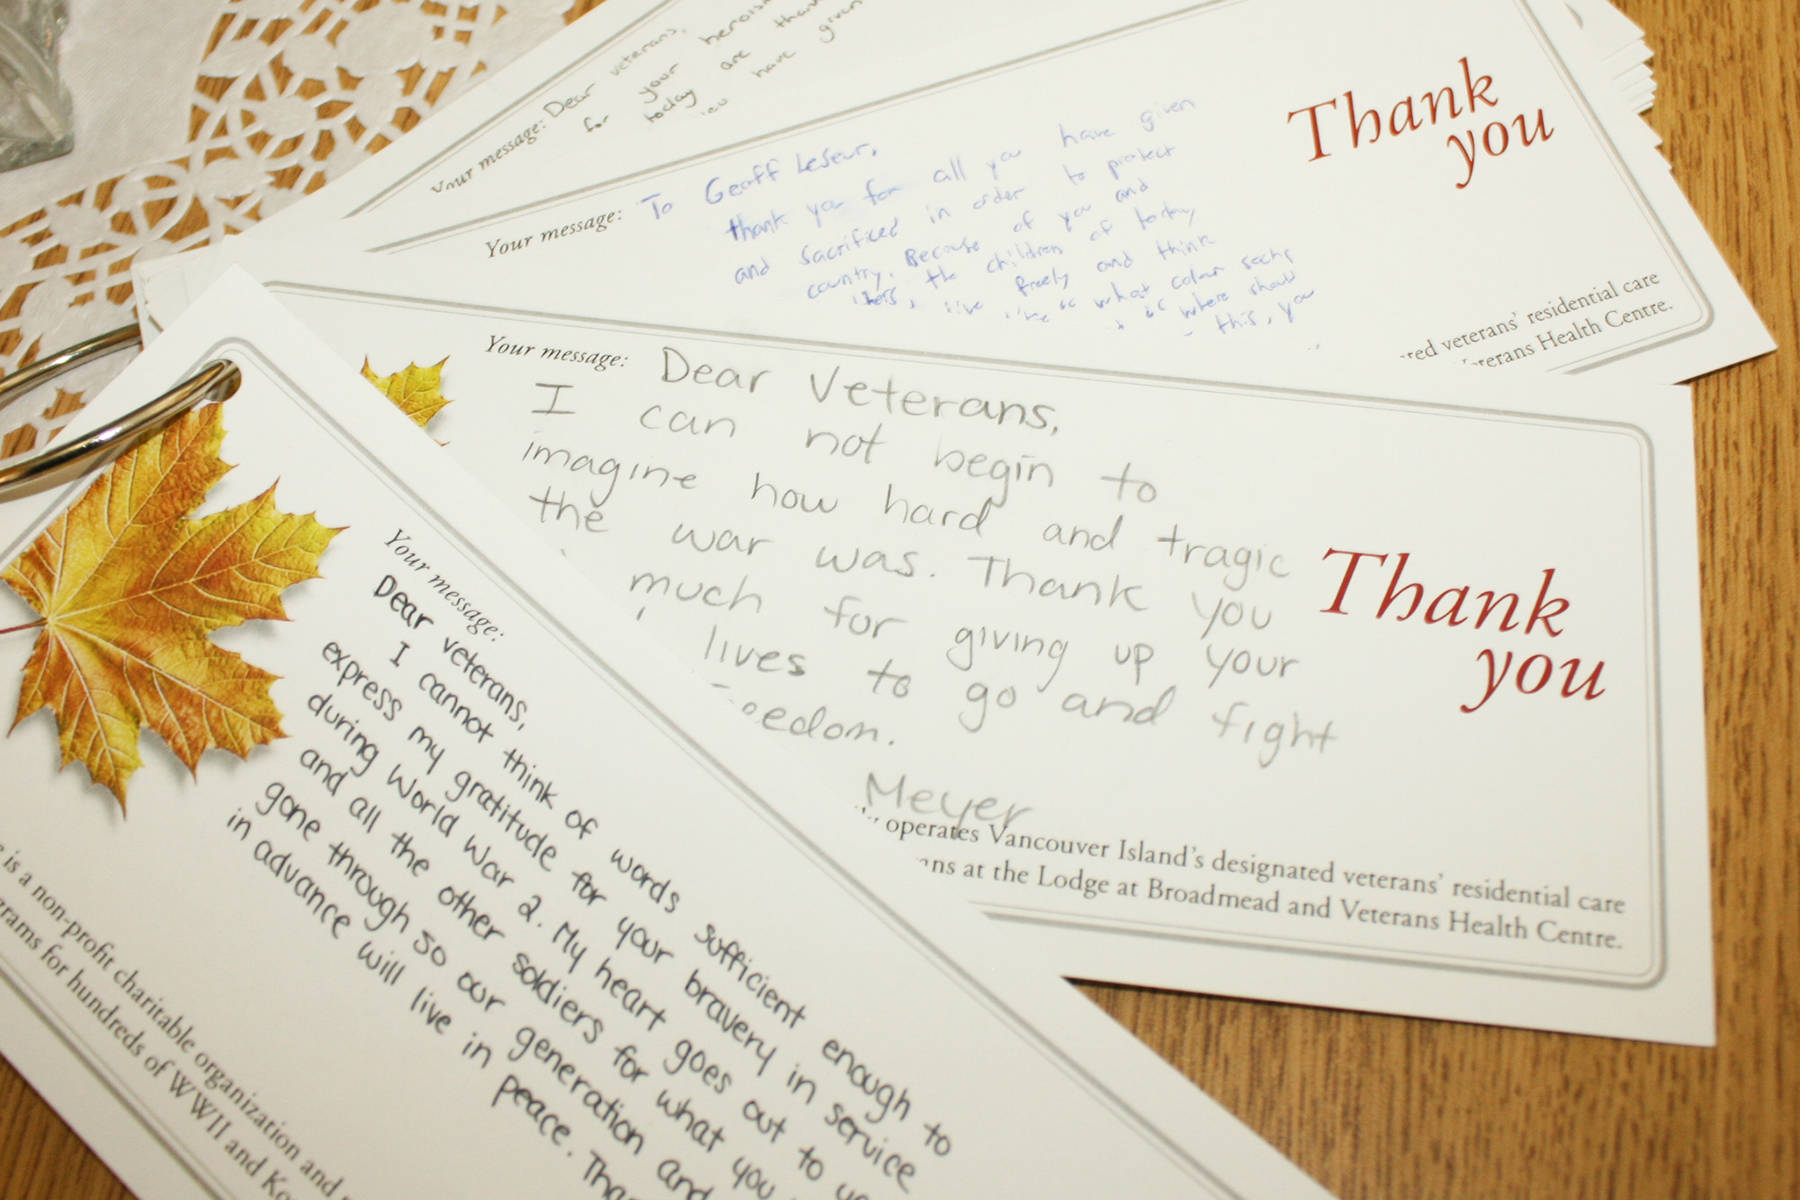 Your message: Dear veterans,
for your
today are
have given
Your message: To Geoff LeSeur,
thank you for all you have given
and sacrificed in order to protect
country. Because of you and
the children of today
live freely and think
what colour
where should
this, you
Thank
you
veterans' residential care
Veterans Health Centre.
Your message: Dear Veterans,
I can not begin to
imagine how hard and tragic
the war was. Thank you
much for giving up your
lives to go and fight
Meyer
Thank
you
operates Vancouver Island's designated veterans' residential care
at the Lodge at Broadmead and Veterans Health Centre.
Your message:
Dear veterans,
I cannot think of words sufficient enough to
express my gratitude for your bravery in service
during World War 2. My heart goes out to
and all the other soldiers for what you
gone through so our generation and
in advance will live in peace.
is a non-profit charitable organization and
for hundreds of WWII and